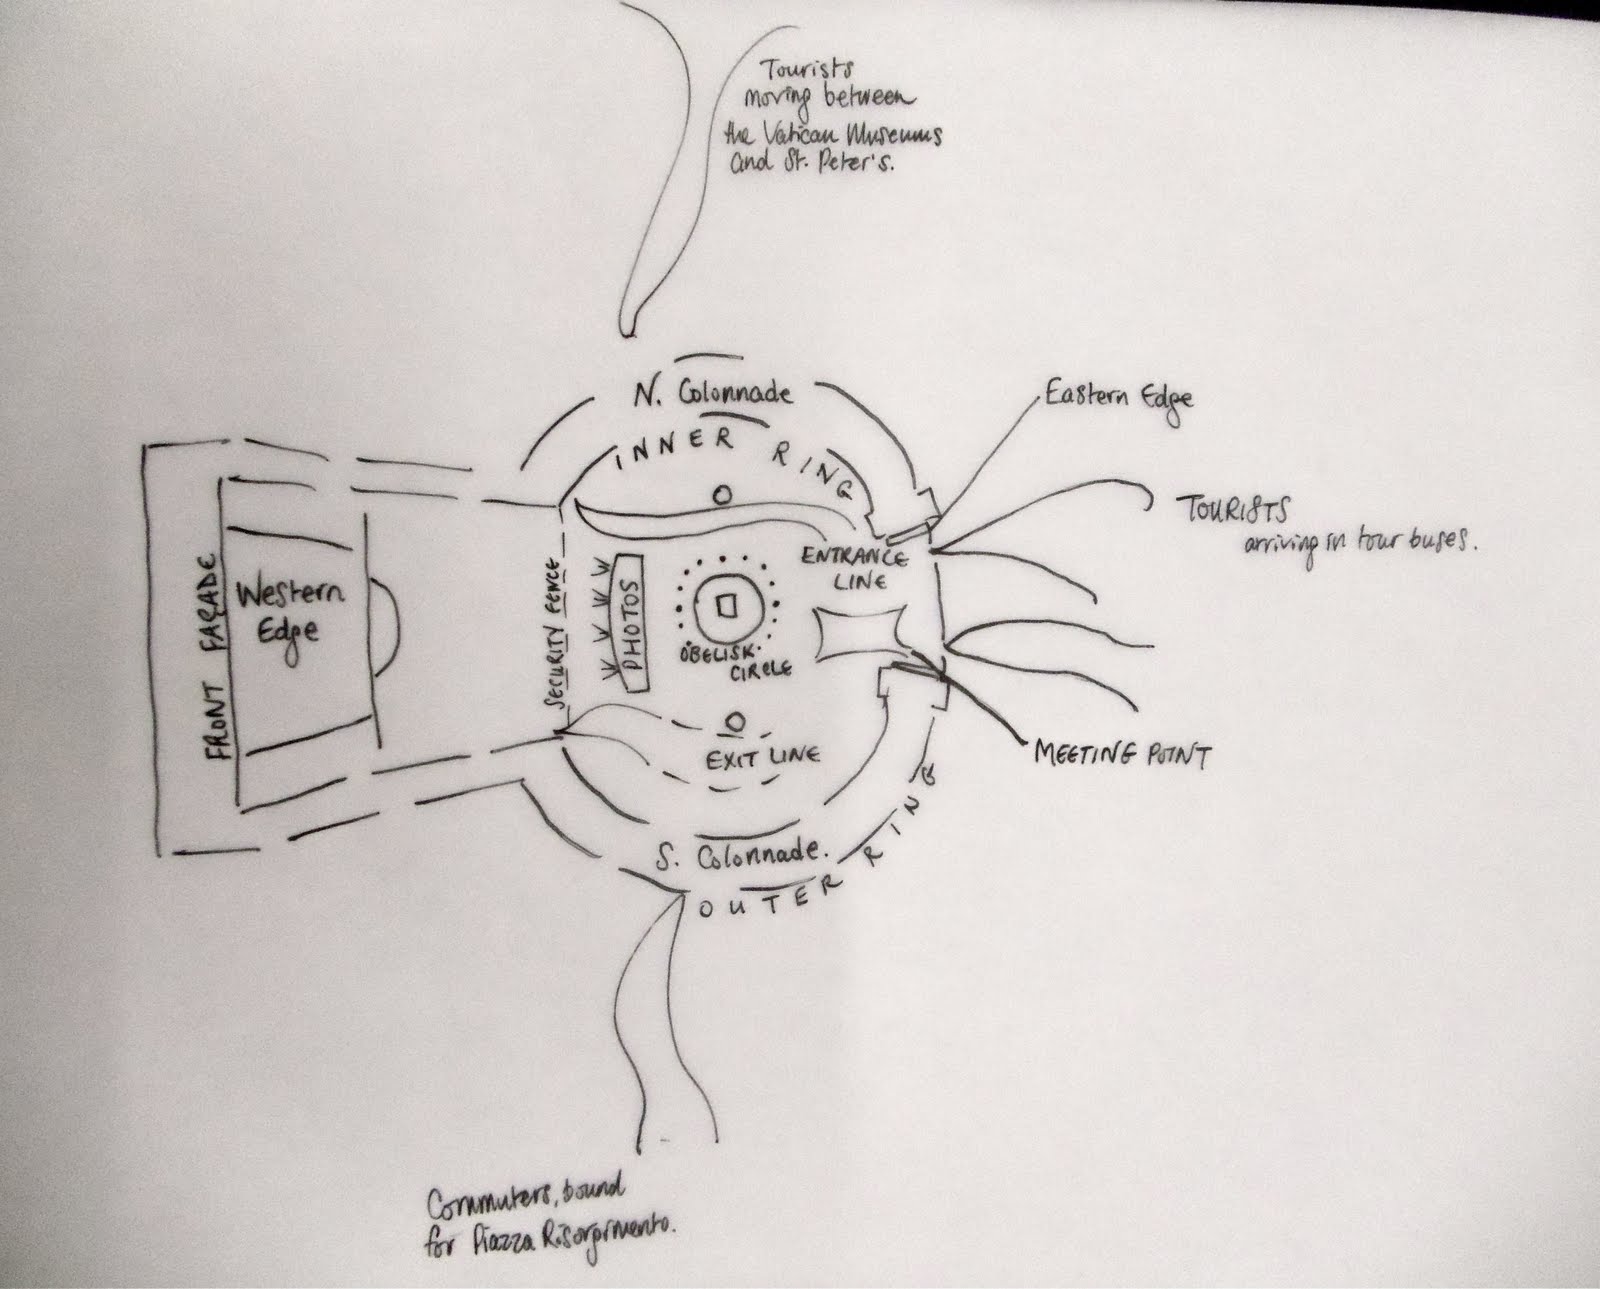 Tourists
moving between
the Vatican Museums
and St. Peter's.
N. Colonnade
INNER RING
Eastern Edge
TOURISTS
arriving in tour buses.
ENTRANCE
LINE
FRONT FAÇADE
Western
Edge
SECURITY FENCE
PHOTOS
OBELISK
CIRCLE
MEETING POINT
EXIT LINE
S. Colonnade.
OUTER RING
Commuters, bound
for Piazza Risorgimento.